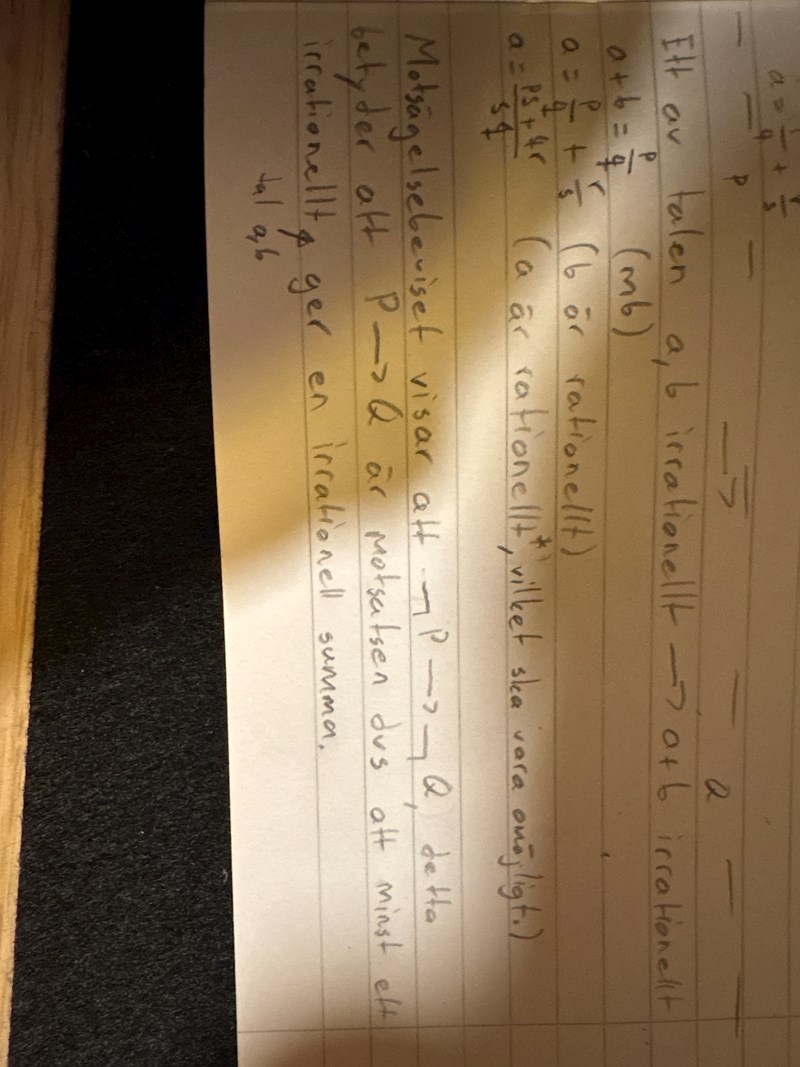 a = + r/s
P Q
Ett av talen a,b irrationellt → a+b irrationellt
a+b = p/q (mb)
a = p/q + r/s (b är rationellt)
a = ps + qr / sq (a är rationellt*, vilket ska vara omöjligt.)
Motsägelsebeviset visar att ¬P → ¬Q, detta
betyder att P → Q är motsatsen dvs att minst ett
irrationellt ger en irrationell summa.
tal a,b